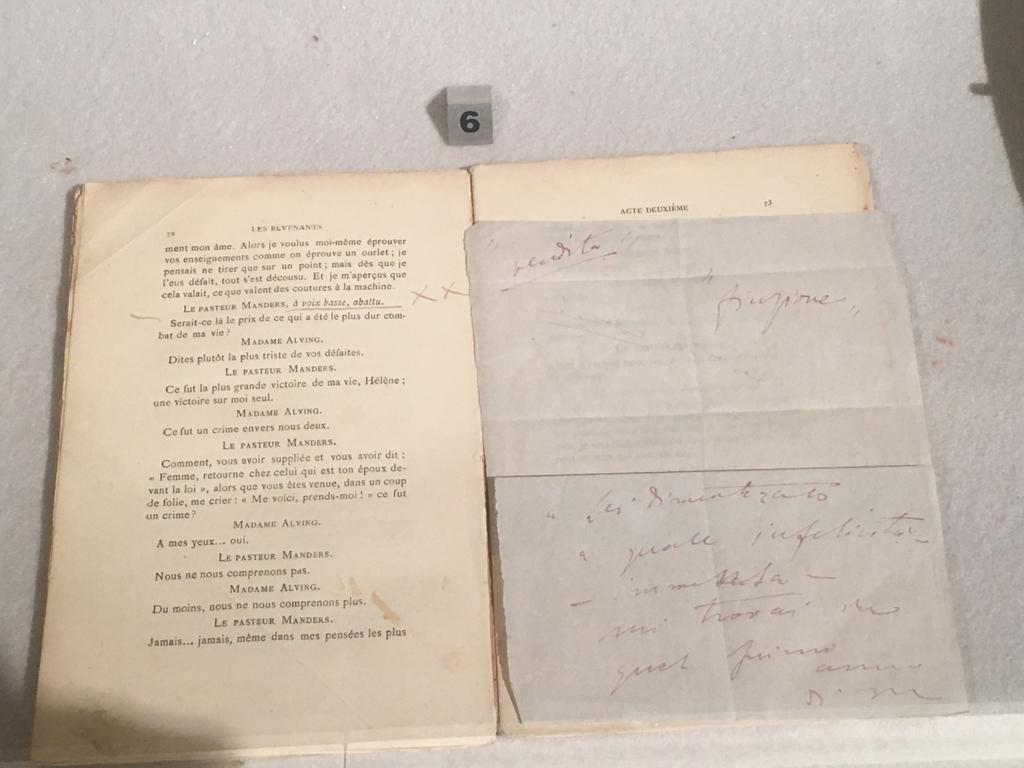 6
72 LES REVENANTS
ment mon âme. Alors je voulus moi-même éprouver
vos enseignements comme on éprouve un ourlet ; je
pensais ne tirer que sur un point ; mais dès que je
l'eus défait, tout s'est décousu. Et je m'aperçus que
cela valait, ce que valent des coutures à la machine.
LE PASTEUR MANDERS, à voix basse, abattu. XX
Serait-ce là le prix de ce qui a été le plus dur com-
bat de ma vie ?
MADAME ALVING.
Dites plutôt la plus triste de vos défaites.
LE PASTEUR MANDERS.
Ce fut la plus grande victoire de ma vie, Hélène ;
une victoire sur moi seul.
MADAME ALVING.
Ce fut un crime envers nous deux.
LE PASTEUR MANDERS.
Comment, vous avoir suppliée et vous avoir dit :
« Femme, retourne chez celui qui est ton époux de-
vant la loi », alors que vous êtes venue, dans un coup
de folie, me crier : « Me voici, prends-moi ! » ce fut
un crime ?
MADAME ALVING.
A mes yeux... oui.
LE PASTEUR MANDERS.
Nous ne nous comprenons pas.
MADAME ALVING.
Du moins, nous ne nous comprenons plus.
LE PASTEUR MANDERS.
Jamais... jamais, même dans mes pensées les plus
ACTE DEUXIÈME 73
" vendita "
" finzione "
" Lei dimenticato
" quale infelicità
mi trovai in
quel primo
anno
di